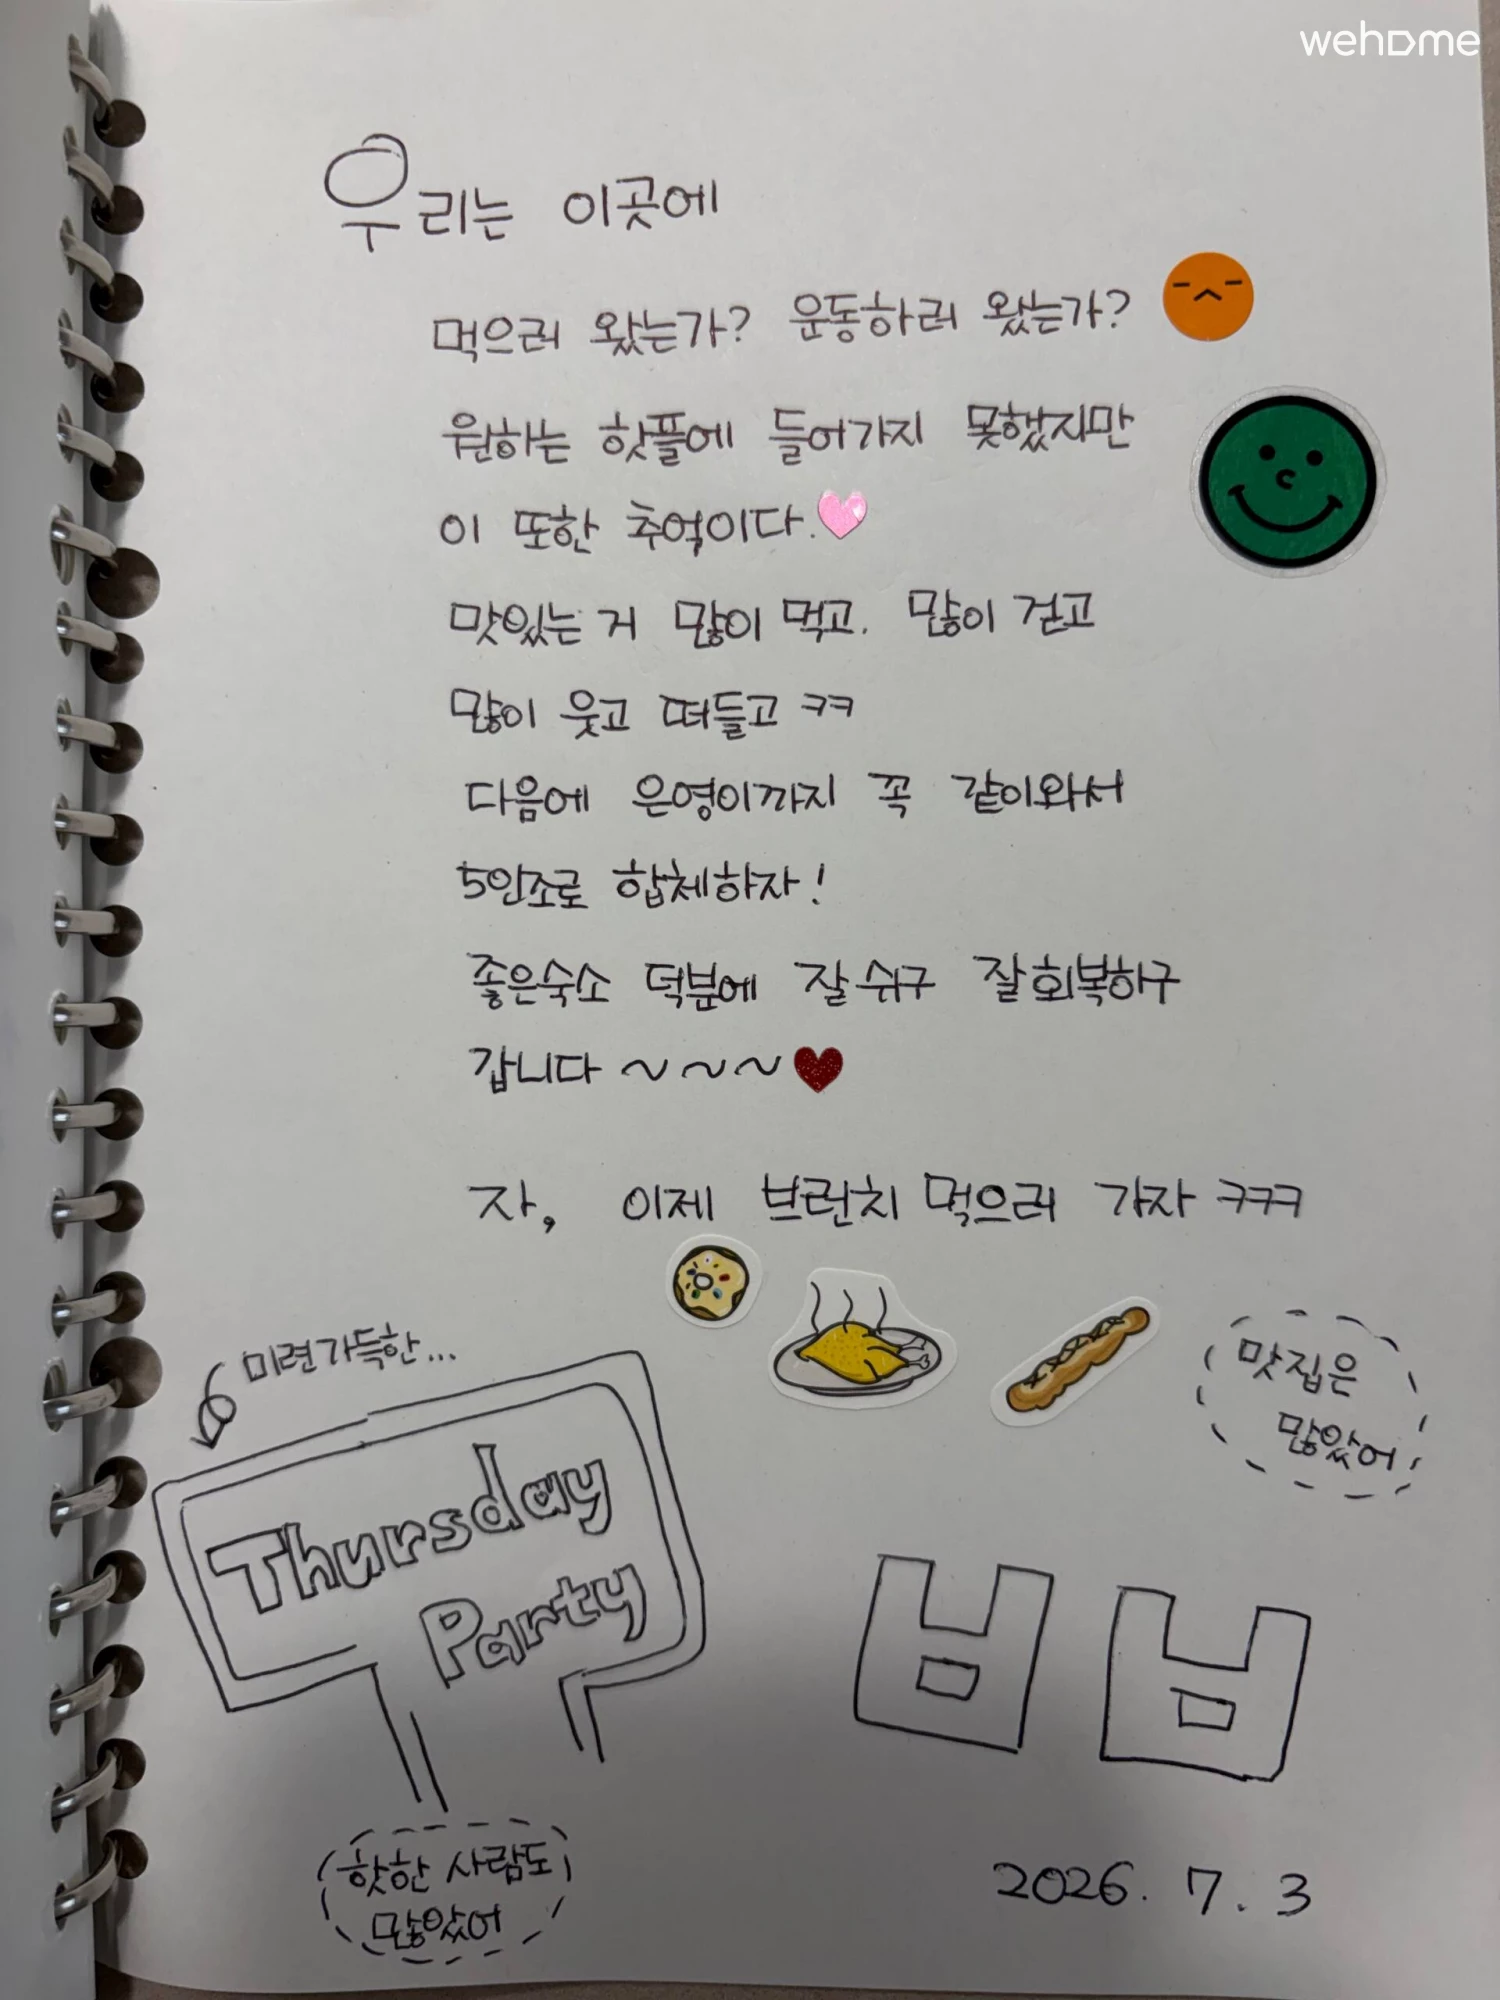 wehome
우리는 이곳에
먹으러 왔는가? 운동하러 왔는가?
원하는 핫플에 들어가지 못했지만
이 또한 추억이다.
맛있는 거 많이 먹고. 많이 걷고
많이 웃고 떠들고 ㅋㅋ
다음에 은영이까지 꼭 같이와서
5인조로 합체하자!
좋은숙소 덕분에 잘 쉬구 잘 회복하구
갑니다 ~ ~ ~
자, 이제 브런치 먹으러 가자 ㅋㅋㅋ
미련가득한...
맛집은
많았어
Thursday
Party
핫한 사람도
많았어
2026. 7. 3